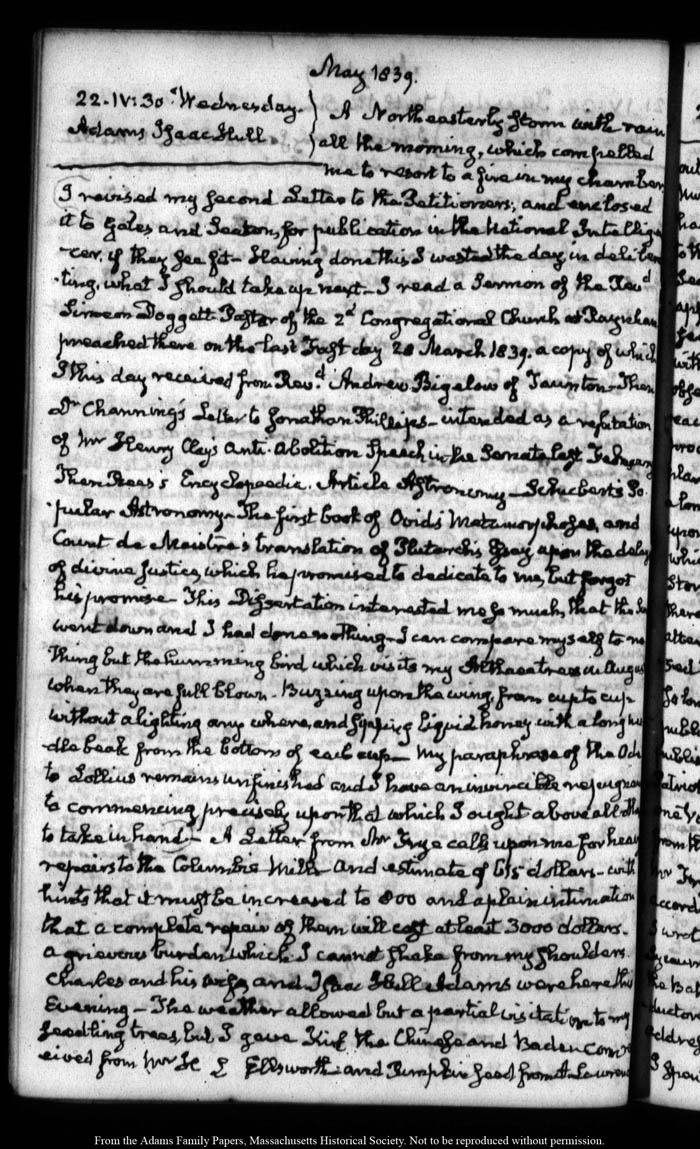 May 1839.
22. IV: 30 Wednesday.
Adams Isaac Hull.
A Northeasterly Storm with rain
all the morning, which compelled
me to resort to a fire in my chamber
I revised my second Letter to the Petitioners; and enclosed
it to Gales and Seaton, for publication in the National Intellige
-cer, if they see fit— Having done this I wasted the day in delibera
-ting, what I should take up next— I read a Sermon of the Revd
Simeon Doggett Pastor of the 2d Congregational Church at Raynham
preached there on the last Fast day 28 March 1839. a copy of which
I this day received from Revd Andrew Bigelow of Taunton— Then
Dr Channing's Letter to Jonathan Phillips— intended as a refutation
of Mr Henry Clay's Anti-Abolition Speech in the Senate last February
Then Rees's Encyclopaedia. Article Astronomy— Schubert's Po
-pular Astronomy— The first book of Ovid's Metamorphoses, and
Count de Maistre's translation of Plutarch's Essay upon the delay
of divine Justice, which he promised to dedicate to me, but forgot
his promise— This Dissertation interested me so much, that the Sun
went down and I had done nothing— I can compare myself to no
thing but the humming bird which visits my Althaea trees in August
when they are full blown. Buzzing upon the wing, from cup to cup
without alighting any where, and sipping liquid honey with a long nee
-dle beak from the bottom of each cup— My paraphrase of the Ode
to Lollius remains unfinished and I have an invincible repugnan
to commencing precisely upon that which I ought above all
to take in hand.— A Letter from Mr Frye calls upon me for heavy
repairs to the Columbia Mills— and estimate of 615 dollars— with
hints that it must be increased to 800 and a plain intimation
that a complete repair of them will cost at least 3000 dollars.
a grievous burden which I cannot shake from my shoulders.
Charles and his wife, and Isaac Hull Adams were here this
Evening— The weather allowed but a partial visitation to my
seedling trees, but I gave Kirk the Chinese and Baden Corn
eived from Mr H L Ellsworth and Pumpkin seed from A. Lawrence
From the Adams Family Papers, Massachusetts Historical Society. Not to be reproduced without permission.